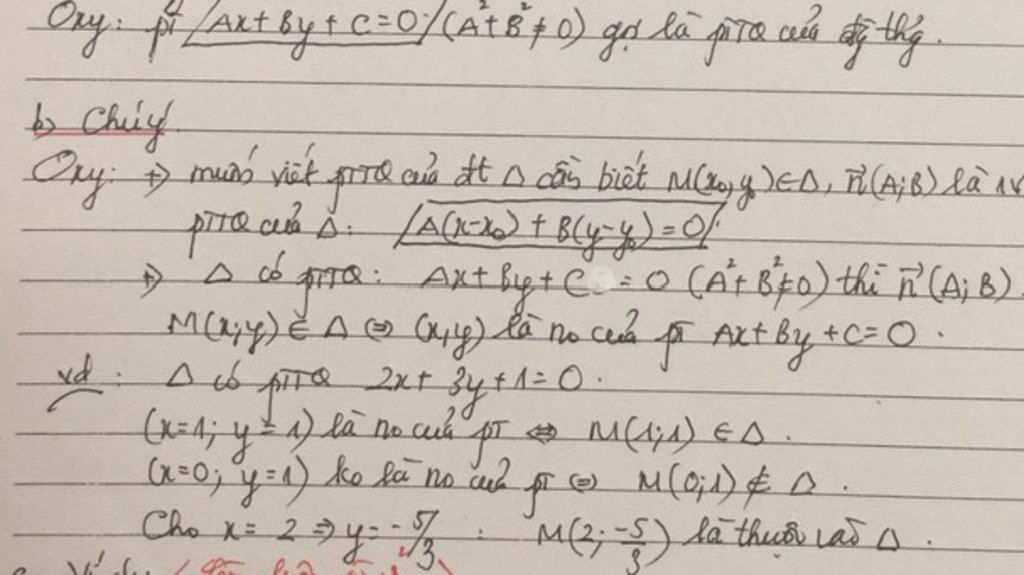 Oxy: pt Ax+By+C=0 (A²+B²≠0) gọi là pTTQ của đg thg.
b) Chú ý
Oxy: +) muốn viết pTTQ của đt Δ cần biết M(x₀,y₀)∈Δ, n⃗(A;B) là 1V
pTTQ của Δ: A(x-x₀) + B(y-y₀)=0
+) Δ có pTTQ: Ax+By+C = 0 (A²+B²≠0) thì n⃗(A;B)
M(x;y) ∈ Δ ⇔ (x,y) là no của pT Ax+By+C=0.
vd: Δ có pTTQ 2x+3y+1=0.
(x=1; y=1) là no của pT ⇔ M(1;1) ∈ Δ.
(x=0; y=1) ko là no của pT ⇔ M(0;1) ∉ Δ.
Cho x=2 ⇒ y=-5/3 : M(2; -5/3) là thuộc vào Δ.